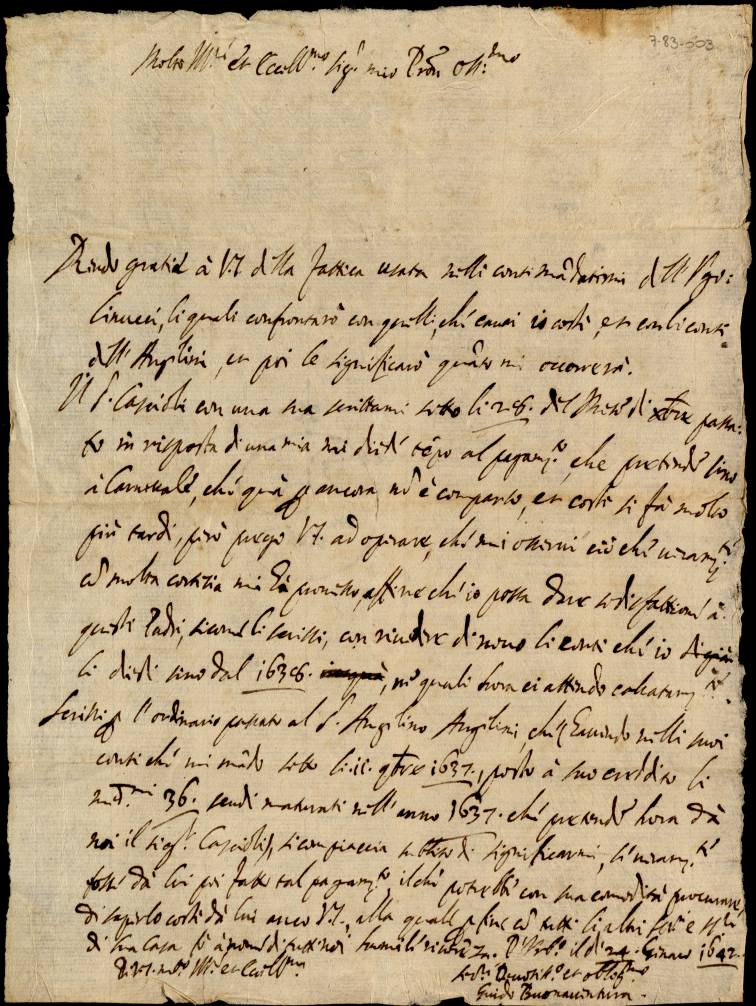 7-83-003
Molto Ill.re et Eccell.mo Sig.r mio Pron Oss.mo
Rendo gratie à V.S. della fattica usata nelli conti mãdatimi dell' Ugo:
linucci, li quali confrontarò con quelli, che cavai io costì, et con li conti
dell' Angilini, et poi le significarò quãto mi occorrerà.
Il S. Cascioli con una sua scrittami sotto li 28. del Mese di xbre passa:
to in risposta di una mia mi diede tẽpo al pagam.to, che pretende sino
à Carnevale, che quà p ancora nõ è comparso, et costì si fà molto
più tardi, però prego V.S. ad operare, che mi osservi ciò che veram.te
cõ molta cortesia mi hà promesso, affine che io possa dare sodisfattione à
questi Padri, sicome li scrissi, con rivedere di novo li conti che io
li diedi sino dal 1638. , ne quali hora ci attendo
Scrissi p l' ordinario passato al S. Angilino Angilini, che havendo nelli suoi
conti che mi mãdò sotto li 12. 9bre 1637., posto à suo credito li
med.mi 36. scudi maturati nell' anno 1637. che pretende hora dà
noi il sig.r Cascioli, si compiaccia di significarmi, se veram.te
fosse dà lui poi fatto tal pagam.to, il che potrebbe con sua comodità procurare
di saperlo costì dà lui anco V.S., alla quale p fine cõ tutti li altri
di sua Casa fò à nome di tutti noi humile riverẽza. D' li 24. Genaro 1642.
Di V.S. molto Ill.re et Eccell.ma
Ser.re Devotiss.o et obblig.mo
Guido Buonaventura.